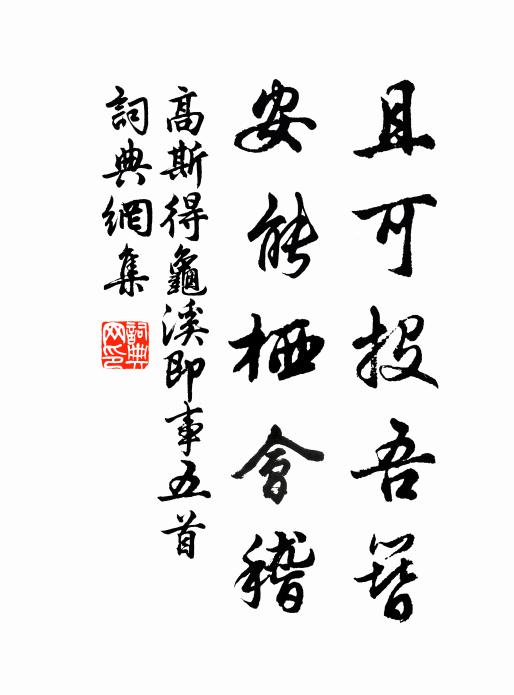 且可投吾簪
安能栖會稽
高斯得龜溪即事五首
詞典網集
詞典网印